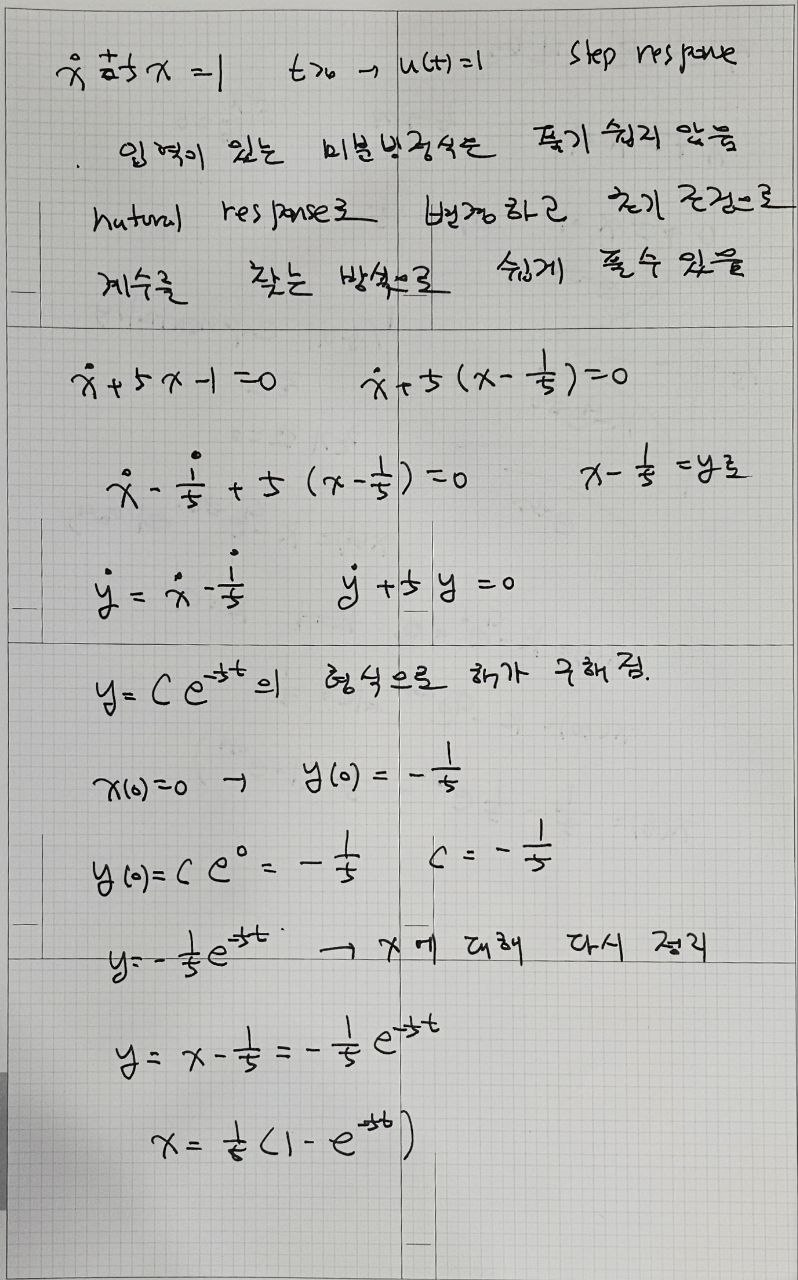 ẋ + 5x = 1 t>0 → u(t)=1 step response
입력이 있는 미분방정식은 풀기 쉽지 않음
natural response로 변경하고 초기 조건으로
계수를 찾는 방식으로 쉽게 풀 수 있음
ẋ + 5x - 1 = 0 ẋ + 5(x - 1/5) = 0
ẋ - i/5 + 5(x - 1/5) = 0 x - 1/5 = y로
ẏ = ẋ - i/5 ẏ + 5y = 0
y = Ce^-5t의 형식으로 해가 구해 짐.
x(0)=0 → y(0) = - 1/5
y(0) = Ce^0 = - 1/5 C = - 1/5
y = - 1/5 e^-5t → x에 대해 다시 정리
y = x - 1/5 = - 1/5 e^-5t
x = 1/5 (1 - e^-5t)